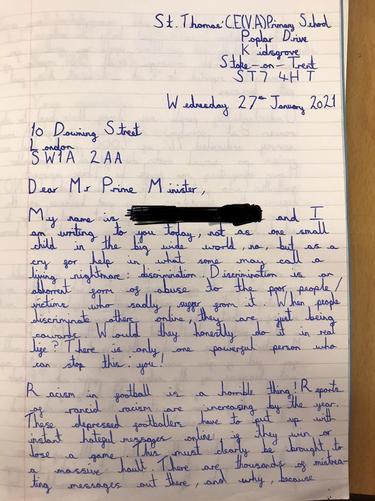 St. Thomas' C.E(V.A) Primary School
Poplar Drive
Kidsgrove
Stoke-on-Trent
ST7 4HT
Wednesday 27th January 2021
10 Downing Street
London
SW1A 2AA
Dear Mr Prime Minister,
My name is and I
am writing to you today, not as one small
child in the big wide world, no, but as a
cry for help in what some may call a
living nightmare: discrimination. Discrimination is an
abhorrent form of abuse to the poor people/
victims who sadly suffer from it. When people
discriminate others online, they are just being
cowards. Would they honestly do it in real
life? There is only one powerful person who
can stop this, you!
Racism in football is a horrible thing! Reports
of rancid racism are increasing by the year.
These depressed footballers have to put up with
instant hateful messages online if they win or
lose a game. This must clearly be brought to
a massive hault. There are thousands of mistrea-
ting messages out there, and why, because